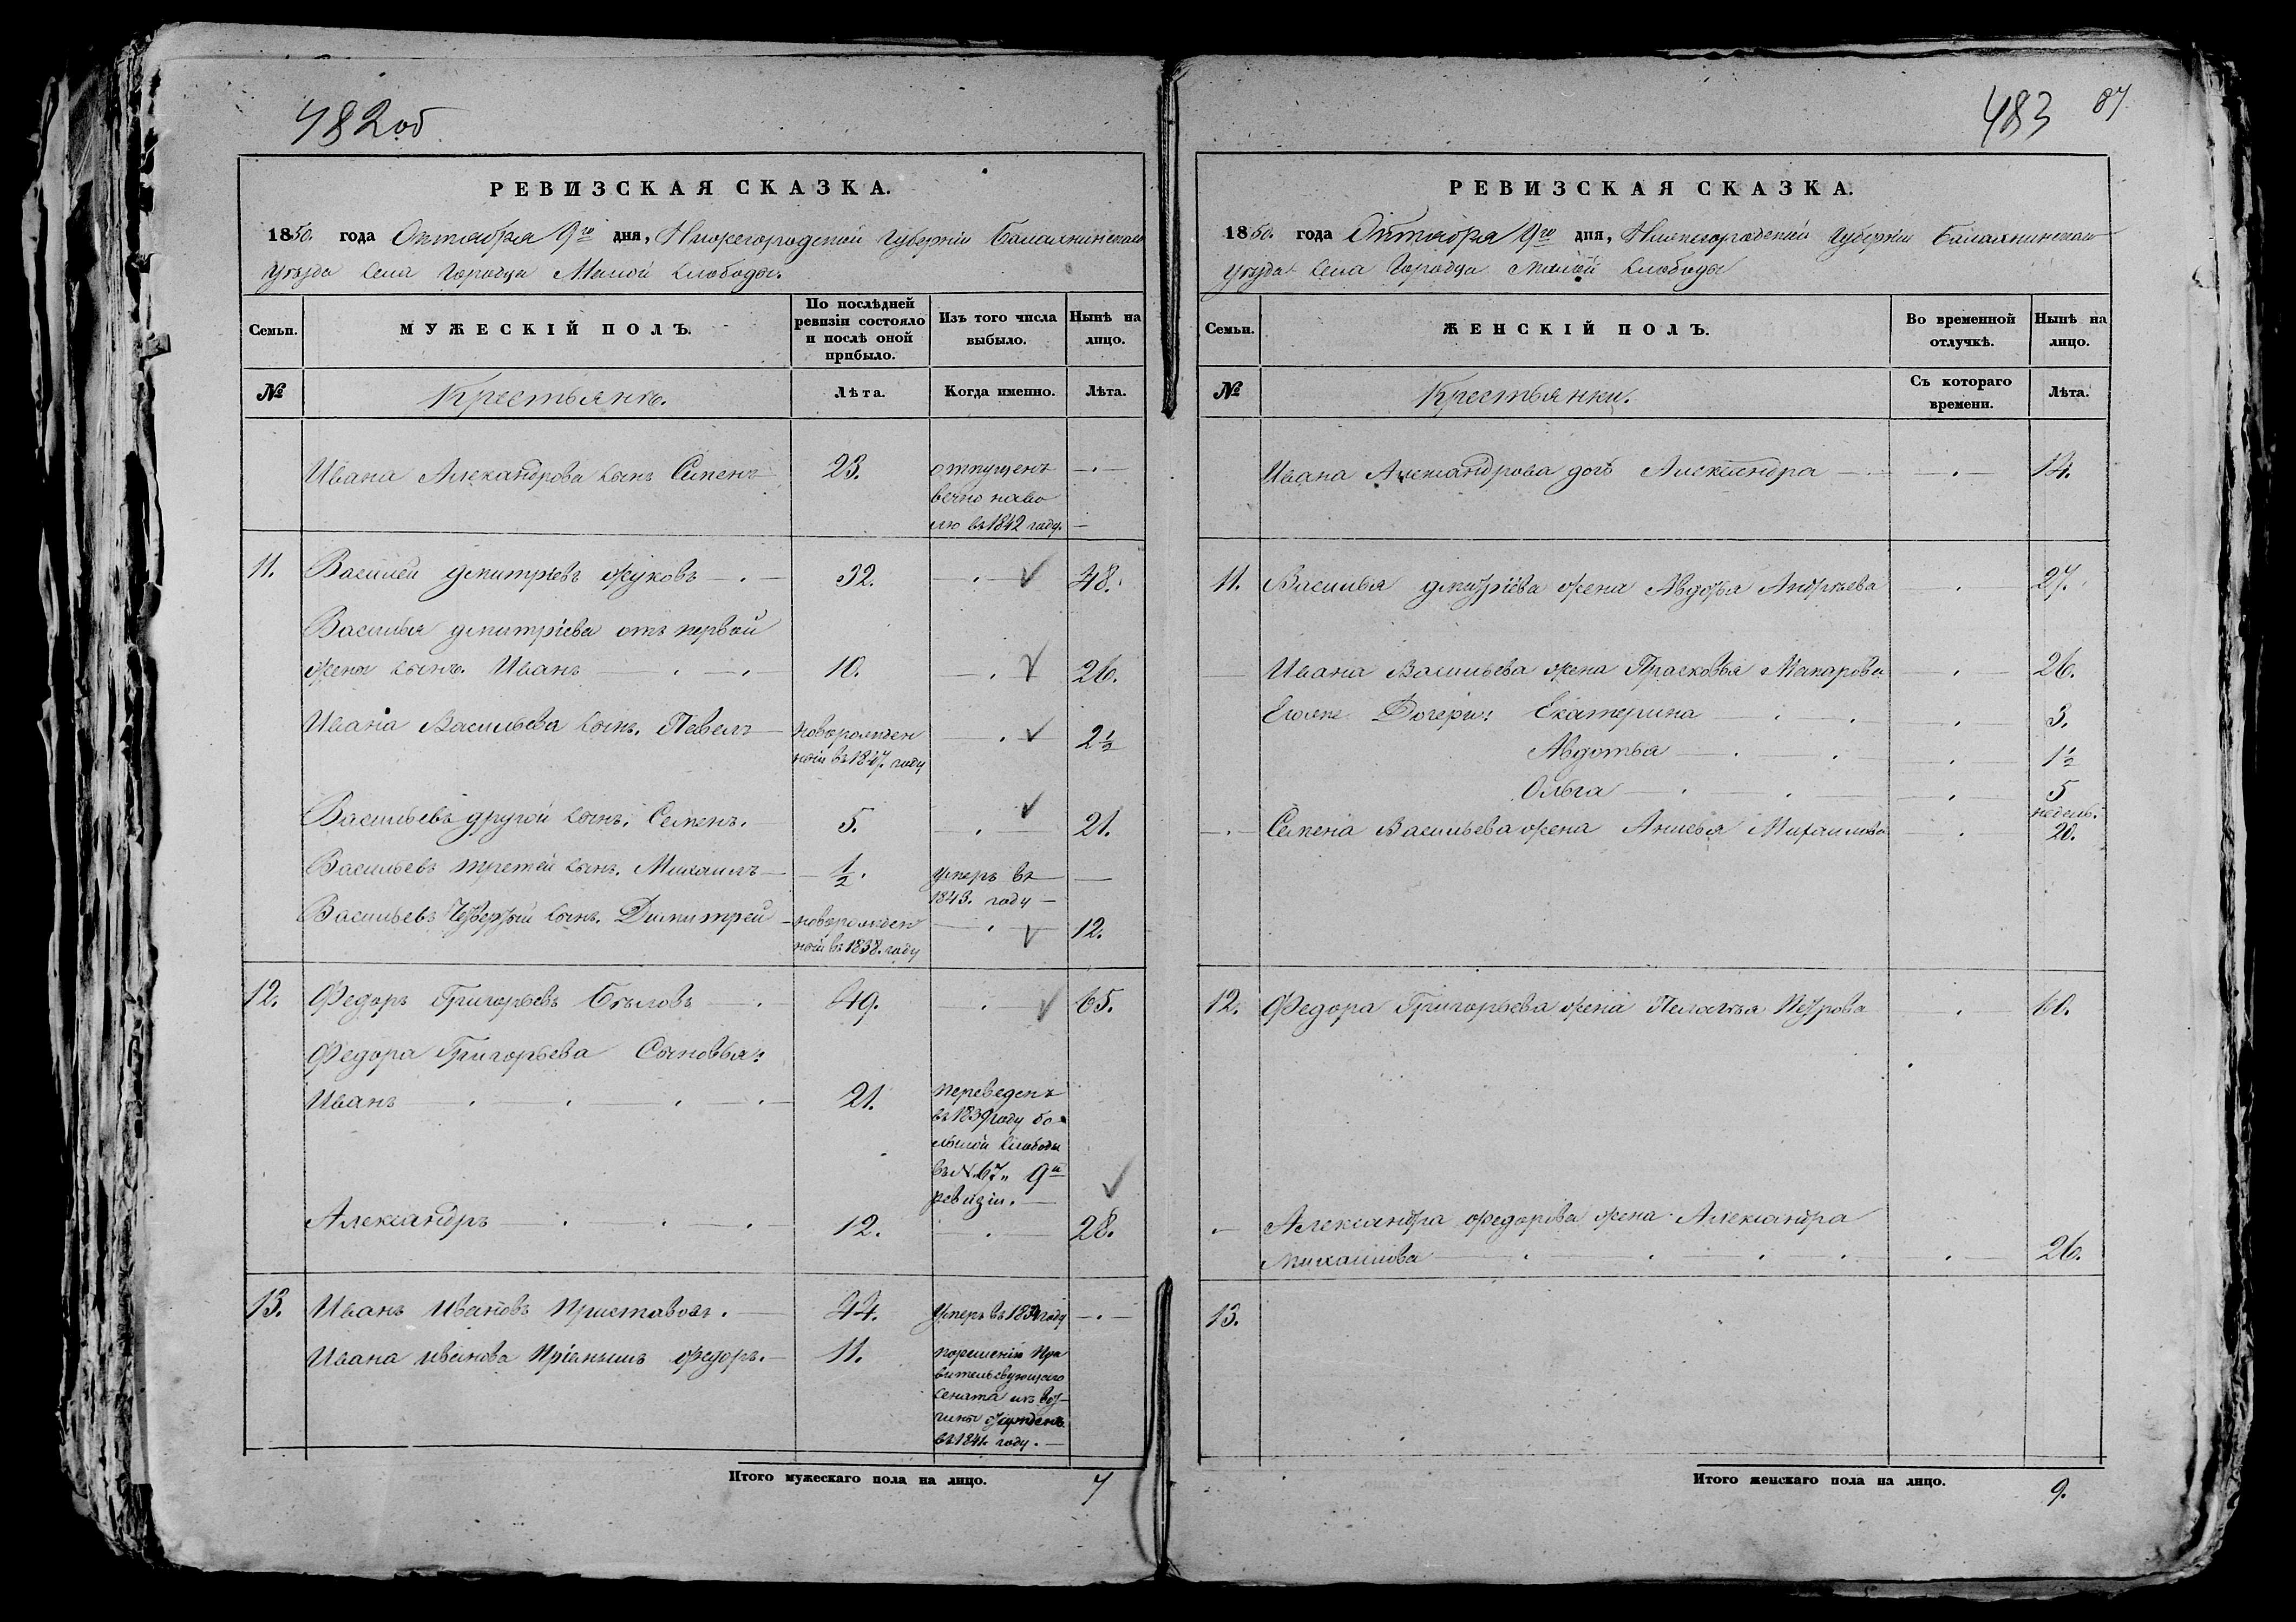 482об
РЕВИЗСКАЯ СКАЗКА.
1850. года Октября 9го дня, Нижегородской Губерніи Балахнинскаго
уѣзда Села Городца Малой Слободы.
Семьи.
МУЖЕСКІЙ ПОЛЪ.
По послѣдней ревизіи состояло и послѣ оной прибыло.
Изъ того числа выбыло.
Нынѣ на лицо.
№
Крестьянъ.
Лѣта.
Когда именно.
Лѣта.
Ивана Александрова сынъ Семенъ 23. отпущенъ
вечно наво
лю въ 1842 году.
11. Василей Дмитріевъ Жуковъ 32. 48.
Василья Дмитріева отъ первой
жены сынъ. Иванъ 10. 26.
Ивана Васильева сынъ. Павелъ новорожден 2 1/2
ной въ 1847. году
Васильевъ другой сынъ. Семенъ. 5. 21.
Васильевъ третей сынъ. Михаилъ 1/2. умеръ въ
1843. году
Васильевъ Четвертый сынъ. Димитрей новорожден 12.
ной въ 1838. году
12. Федоръ Григорьевъ Бѣловъ 49. 65.
Федора Григорьева Сыновья:
Иванъ 21. переведенъ
въ 1839 году бо
льшой Слободы
въ № 67 „ 9й
ревизіи.
Александръ 12. 28.
13. Иванъ Ивановъ Приставовъ. 44. Умеръ въ году
Ивана Иванова Пріемышъ Федоръ. 11. порешенію Пра
вительствующаго
Сената изъ вот
чины отсужденъ
въ 1841. году.
Итого мужескаго пола на лицо. 7
483 87
РЕВИЗСКАЯ СКАЗКА.
1850. года Октября 9го дня, Нижегородской Губерніи Балахнинскаго
уѣзда Села Городца Малой Слободы
Семьи.
ЖЕНСКІЙ ПОЛЪ.
Во временной отлучкѣ.
Нынѣ на лицо.
№
Крестьянки.
Съ котораго времени.
Лѣта.
Ивана Александрова дочь Александра 14.
11. Василья Дмитріева жена Авдотья Андреева 27.
Ивана Васильева жена Прасковья Макарова 26.
Екатерина 3.
Авдотья 1 1/2
Ольга 5
недель.
Семена Васильева жена Анисья Михаилова 20.
12. Федора Григорьева жена Пелагѣя Петрова 60.
Александра Федорова жена Александра
Михаилова 26.
13.
Итого женскаго пола на лицо. 9.